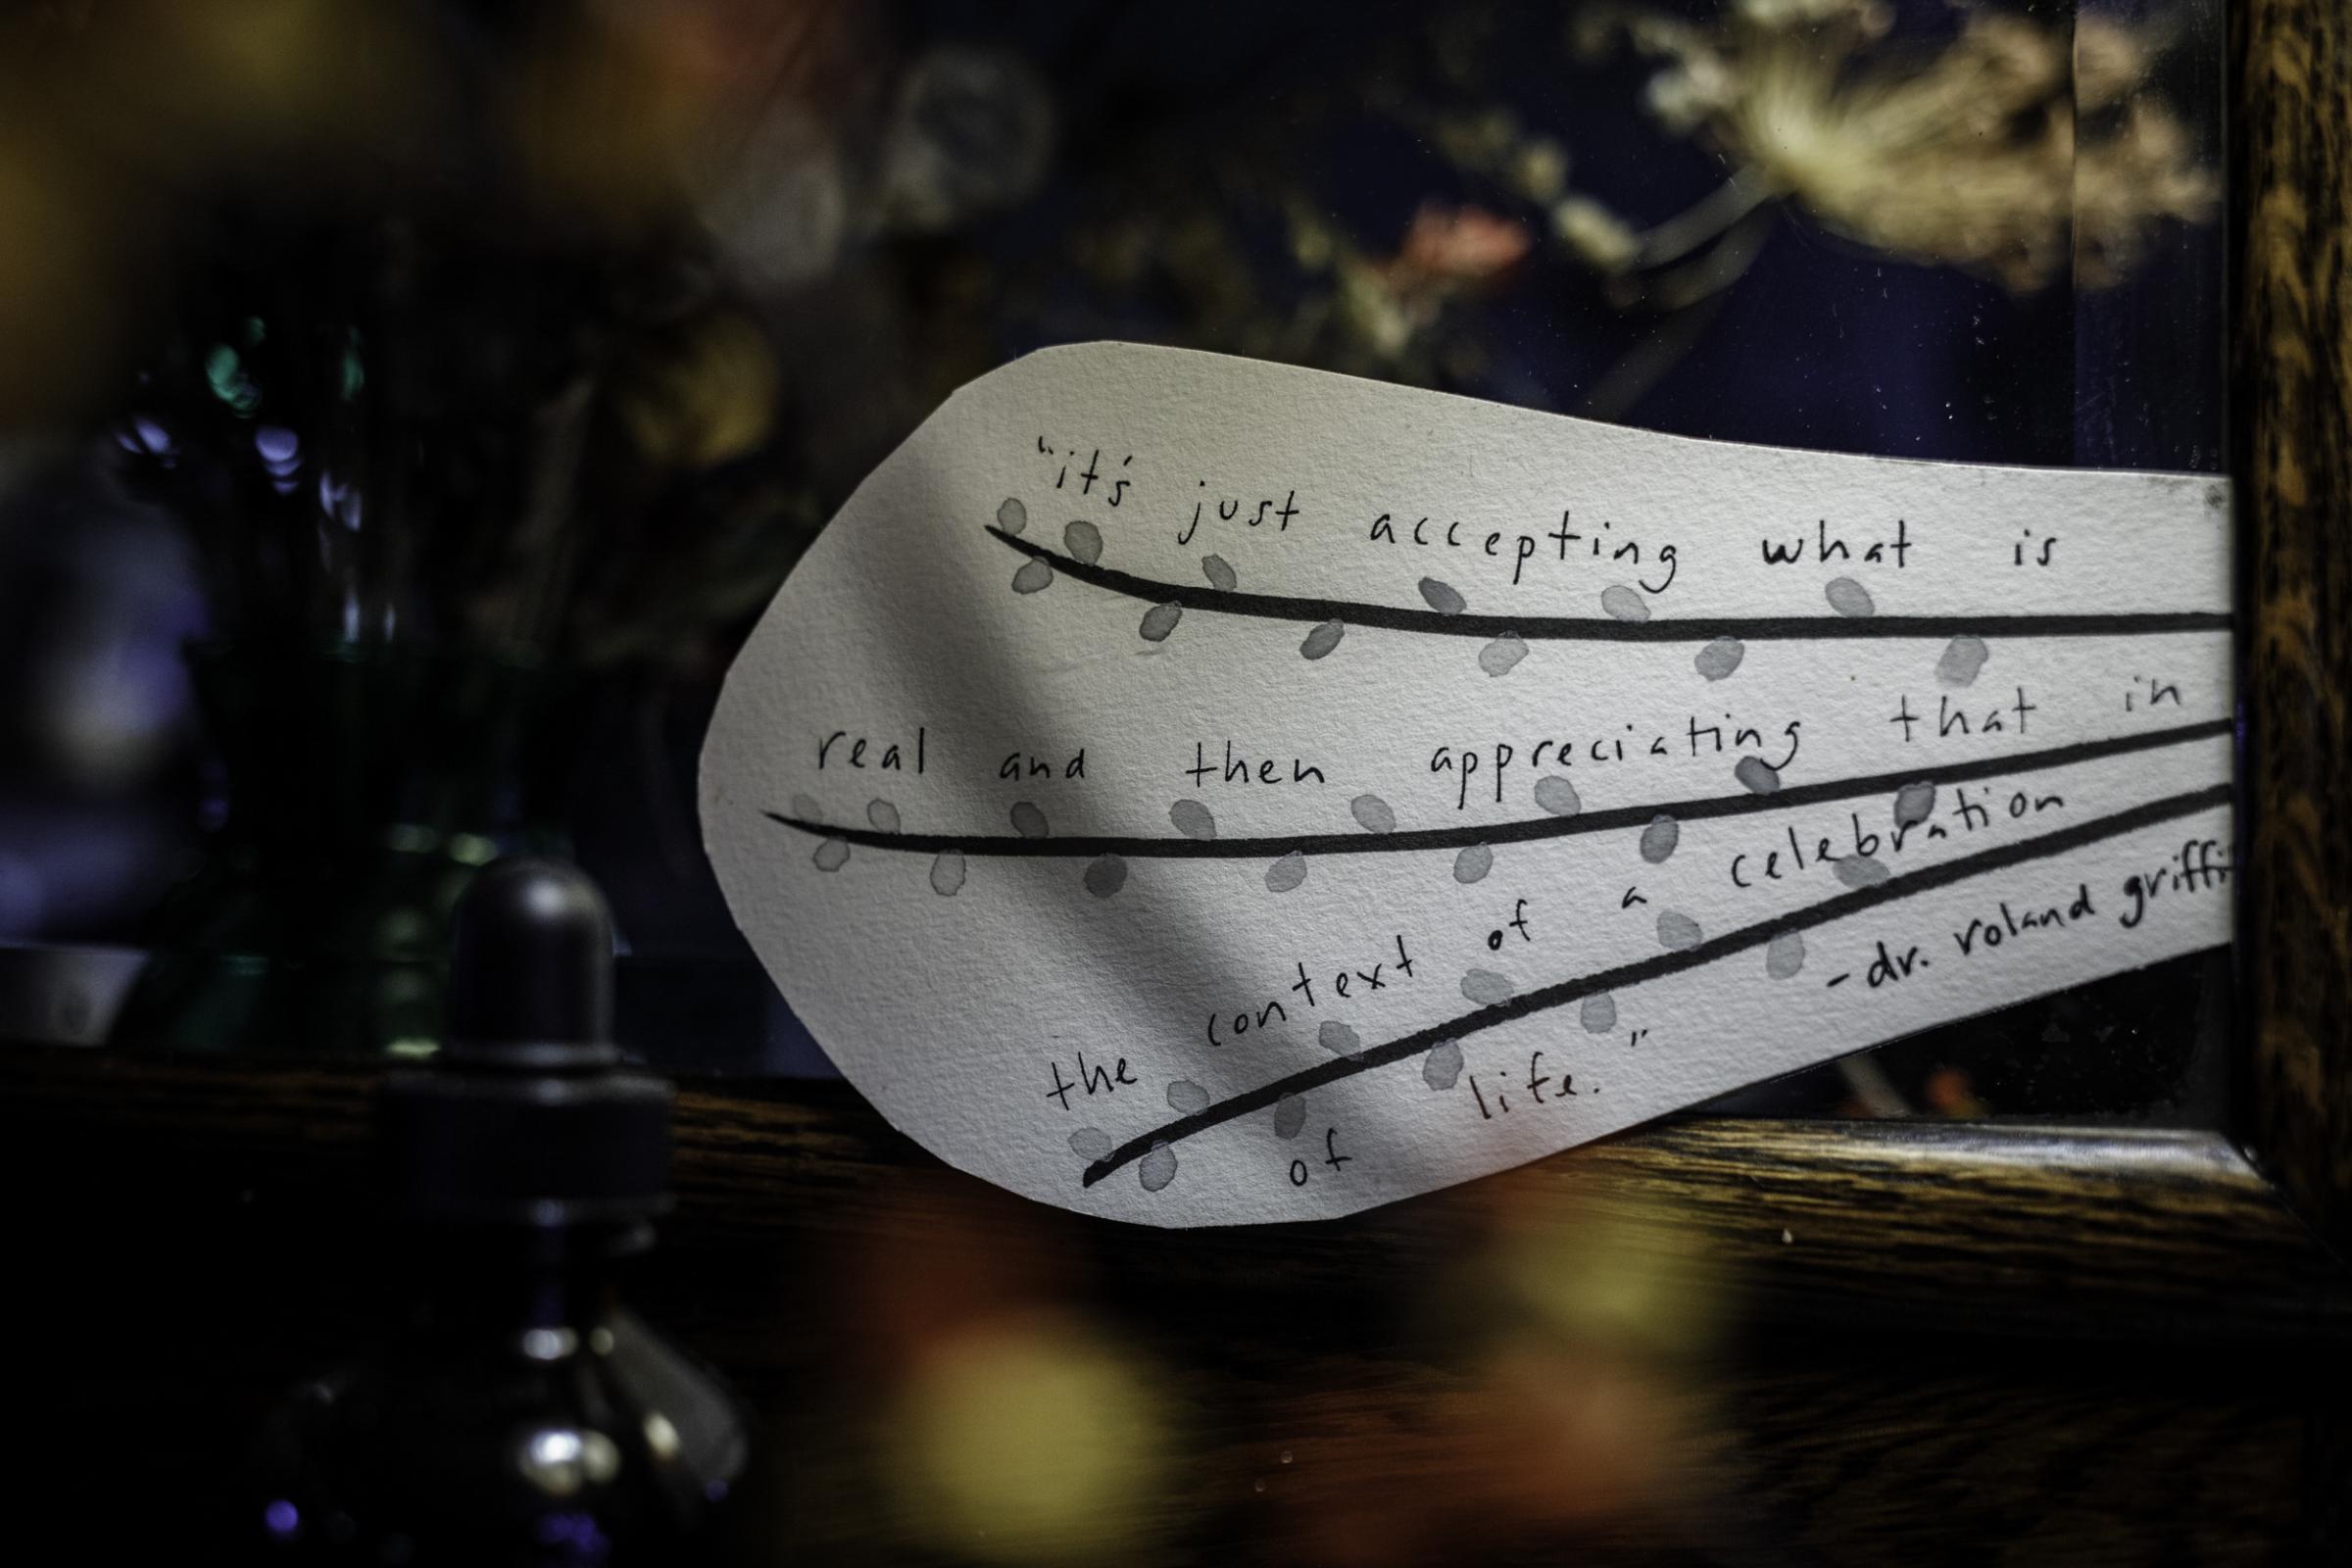 "it's just accepting what is
real and then appreciating that in
the context of a celebration
of life."
- dr. roland griffi